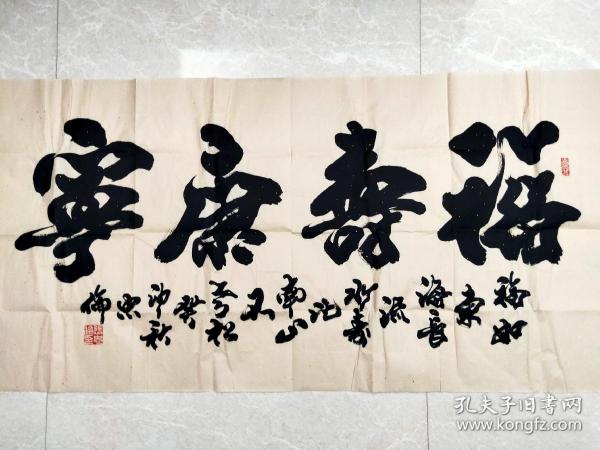 福壽康寧
福如東海長流水壽比南山不老松癸卯秋忠倫
孔夫子旧书网
www.kongfz.com